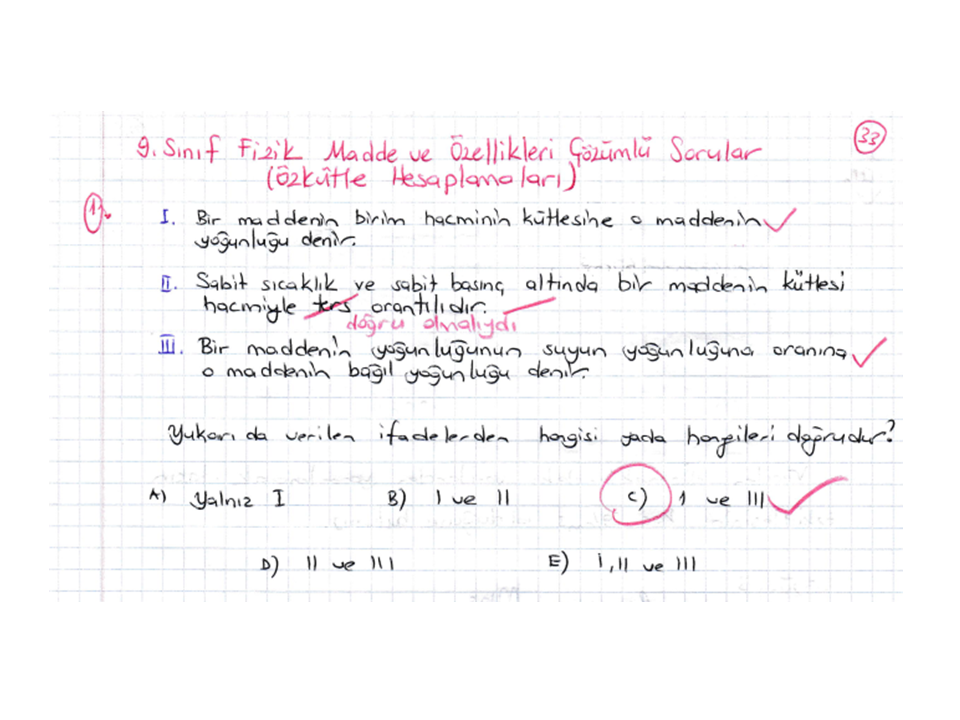 33
9. Sınıf Fizik Madde ve Özellikleri Çözümlü Sorular
(Özkütle Hesaplamaları)
1. I. Bir maddenin birim hacminin kütlesine o maddenin
yoğunluğu denir.
II. Sabit sıcaklık ve sabit basınç altında bir maddenin kütlesi
hacmiyle ters orantılıdır.
doğru olmalıydı
III. Bir maddenin yoğunluğunun suyun yoğunluğuna oranına
o maddenin bağıl yoğunluğu denir.
Yukarıda verilen ifadelerden hangisi yada hangileri doğrudur?
A) Yalnız I B) I ve II C) I ve III
D) II ve III E) I, II ve III